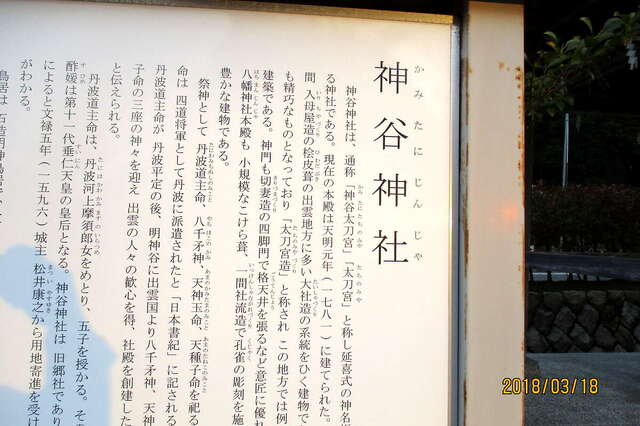 かみたにじんじゃ
神谷神社
神谷神社は、通称「神谷太刀宮」「太刀宮」と称し延喜式の神名
る神社である。現在の本殿は天明元年(一七八一)に建てられた。
間 入母屋造の桧皮葺の出雲地方に多い大社造の系統をひく建物で
も精巧なものとなっており「太刀宮造」と称され この地方では例
建築である。神門も切妻造の四脚門で格天井を張るなど意匠に優れ
八幡神社本殿も 小規模なこけら葺、一間社流造で孔雀の彫刻を施
豊かな建物である。
祭神として 丹波道主命、八千矛神、天神玉命、天種子命を祀る
命は 四道将軍として丹波に派遣されたと「日本書紀」に記される
丹波道主命が 丹波平定の後、明神谷に出雲国より八千矛神、天神
子命の三座の神々を迎え 出雲の人々の歓心を得、社殿を創建した
と伝えられる。
丹波道主命は、丹波河上摩須郎女をめとり、五子を授かる。そ
酢媛は第十一代垂仁天皇の皇后となる。神谷神社は 旧郷社であり
によると文禄五年(一五九六)城主 松井康之から用地寄進を受け
がわかる。
鳥居は 石造明神鳥居
2018/03/18